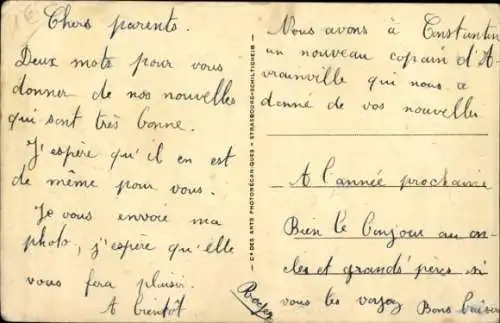 Chers parents.
Deux mots pour vous
donner de nos nouvelles
qui sont très bonne.
J'espère qu'il en est
de même pour vous.
Je vous envoie ma
photo, j'espère qu'elle
vous fera plaisir.
A bientôt
Cie DES ARTS PHOTOMÉCANIQUES - STRASBOURG-SCHILTIGHEIM
Nous avons à Constantin
un nouveau copain d'A-
vrainville qui nous a
donné de vos nouvelles
A l'année prochaine
Bien le bonjour au on-
cles et grands' pères si
vous les voyez Bons baiser
Roger